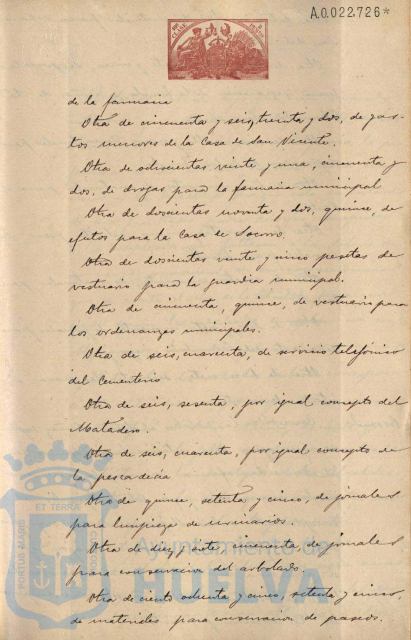 A.0.022.726*
de la farmacia
Otra de cincuenta y seis, treinta y dos, de gas-
tos menores de la Casa de San Vicente.
Otra de ochocientas veinte y una, cincuenta y
dos, de drogas para la farmacia municipal
Otra de doscientas noventa y dos, quince, de
efectos para la Casa de Socorro.
Otra de doscientas veinte y cinco pesetas de
vestuario para la guardia municipal.
Otra de cincuenta, quince, de vestuario para
los ordenanzas municipales.
Otra de seis, cuarenta, de servicio telefónico
del Cementerio
Otra de seis, sesenta, por igual concepto del
Matadero.
Otra de seis, cuarenta, por igual concepto de
la pescadería
Otra de quince, setenta y cinco, de jornales
para limpieza de urinarios.
Otra de diez y siete, cincuenta, de jornales
para conservacion del arbolado.
Otra de ciento ochenta y cinco, setenta y cinco,
de materiales para conservacion de paseos.
PORTUS MARIS ET TERRÆ
Ayuntamiento de
HUELVA